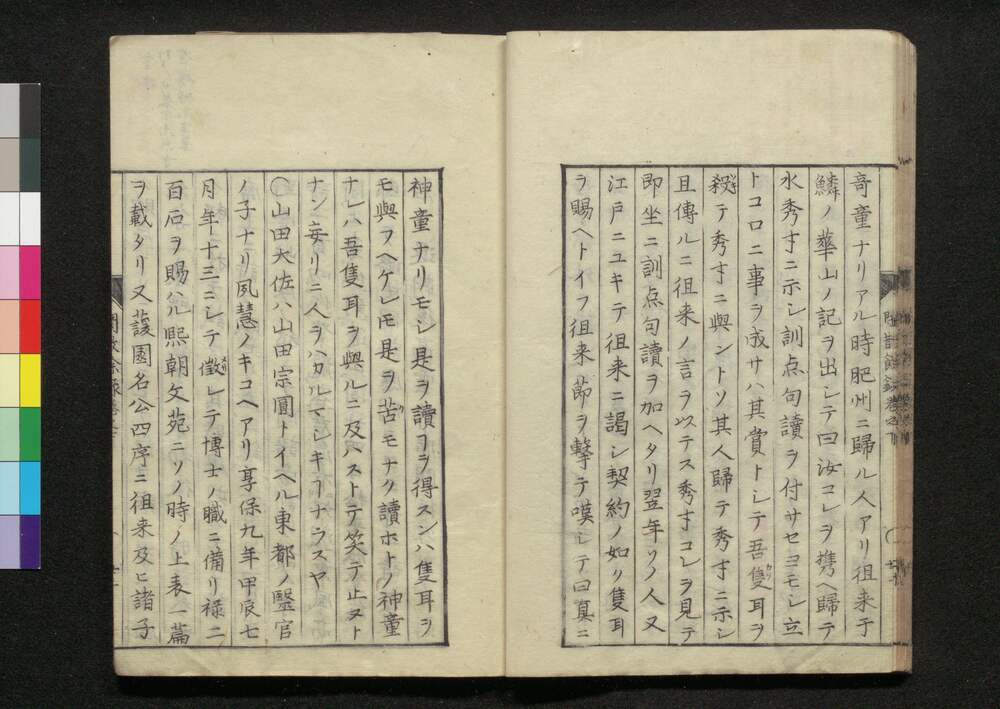 奇童ナリアル時肥州ニ歸ル人アリ徂来于
鱗ノ華山ノ記ヲ出シテ曰汝コレヲ携ヘ歸テ
水秀才ニ示シ訓点句讀ヲ付サセヨモシ立
トコロニ事ヲ成サハ其賞トシテ吾隻耳ヲ
殺テ秀才ニ與ントソ其人歸テ秀才ニ示シ
且傳ルニ徂来ノ言ヲ以テス秀才コレヲ見テ
即坐ニ訓点句讀ヲ加ヘタリ翌年ソノ人又
江戸ニユキテ徂来ニ謁シ契約ノ如ク隻耳
ヲ賜ヘトイフ徂来節ヲ撃テ嘆シテ曰真ニ
神童ナリモシ是ヲ讀ヿヲ得スンハ隻耳ヲ
モ與フヘケレ𪜈是ヲ苦モナク讀ホトノ神童
ナレハ吾隻耳ヲ與ルニ及ハストテ笑テ止ヌト
ナン妄リニ人ヲハカルマシキヿナラスヤ
○山田大佐ハ山田宗圓トイヘル東都ノ醫官
ノ子ナリ夙慧ノキコヘアリ享保九年甲辰七
月年十三ニシテ徴レテ博士ノ職ニ備リ禄二
百石ヲ賜ハル熙朝文苑ニソノ時ノ上表一篇
ヲ載タリ又蘐園名公四序ニ徂来及ヒ諸子